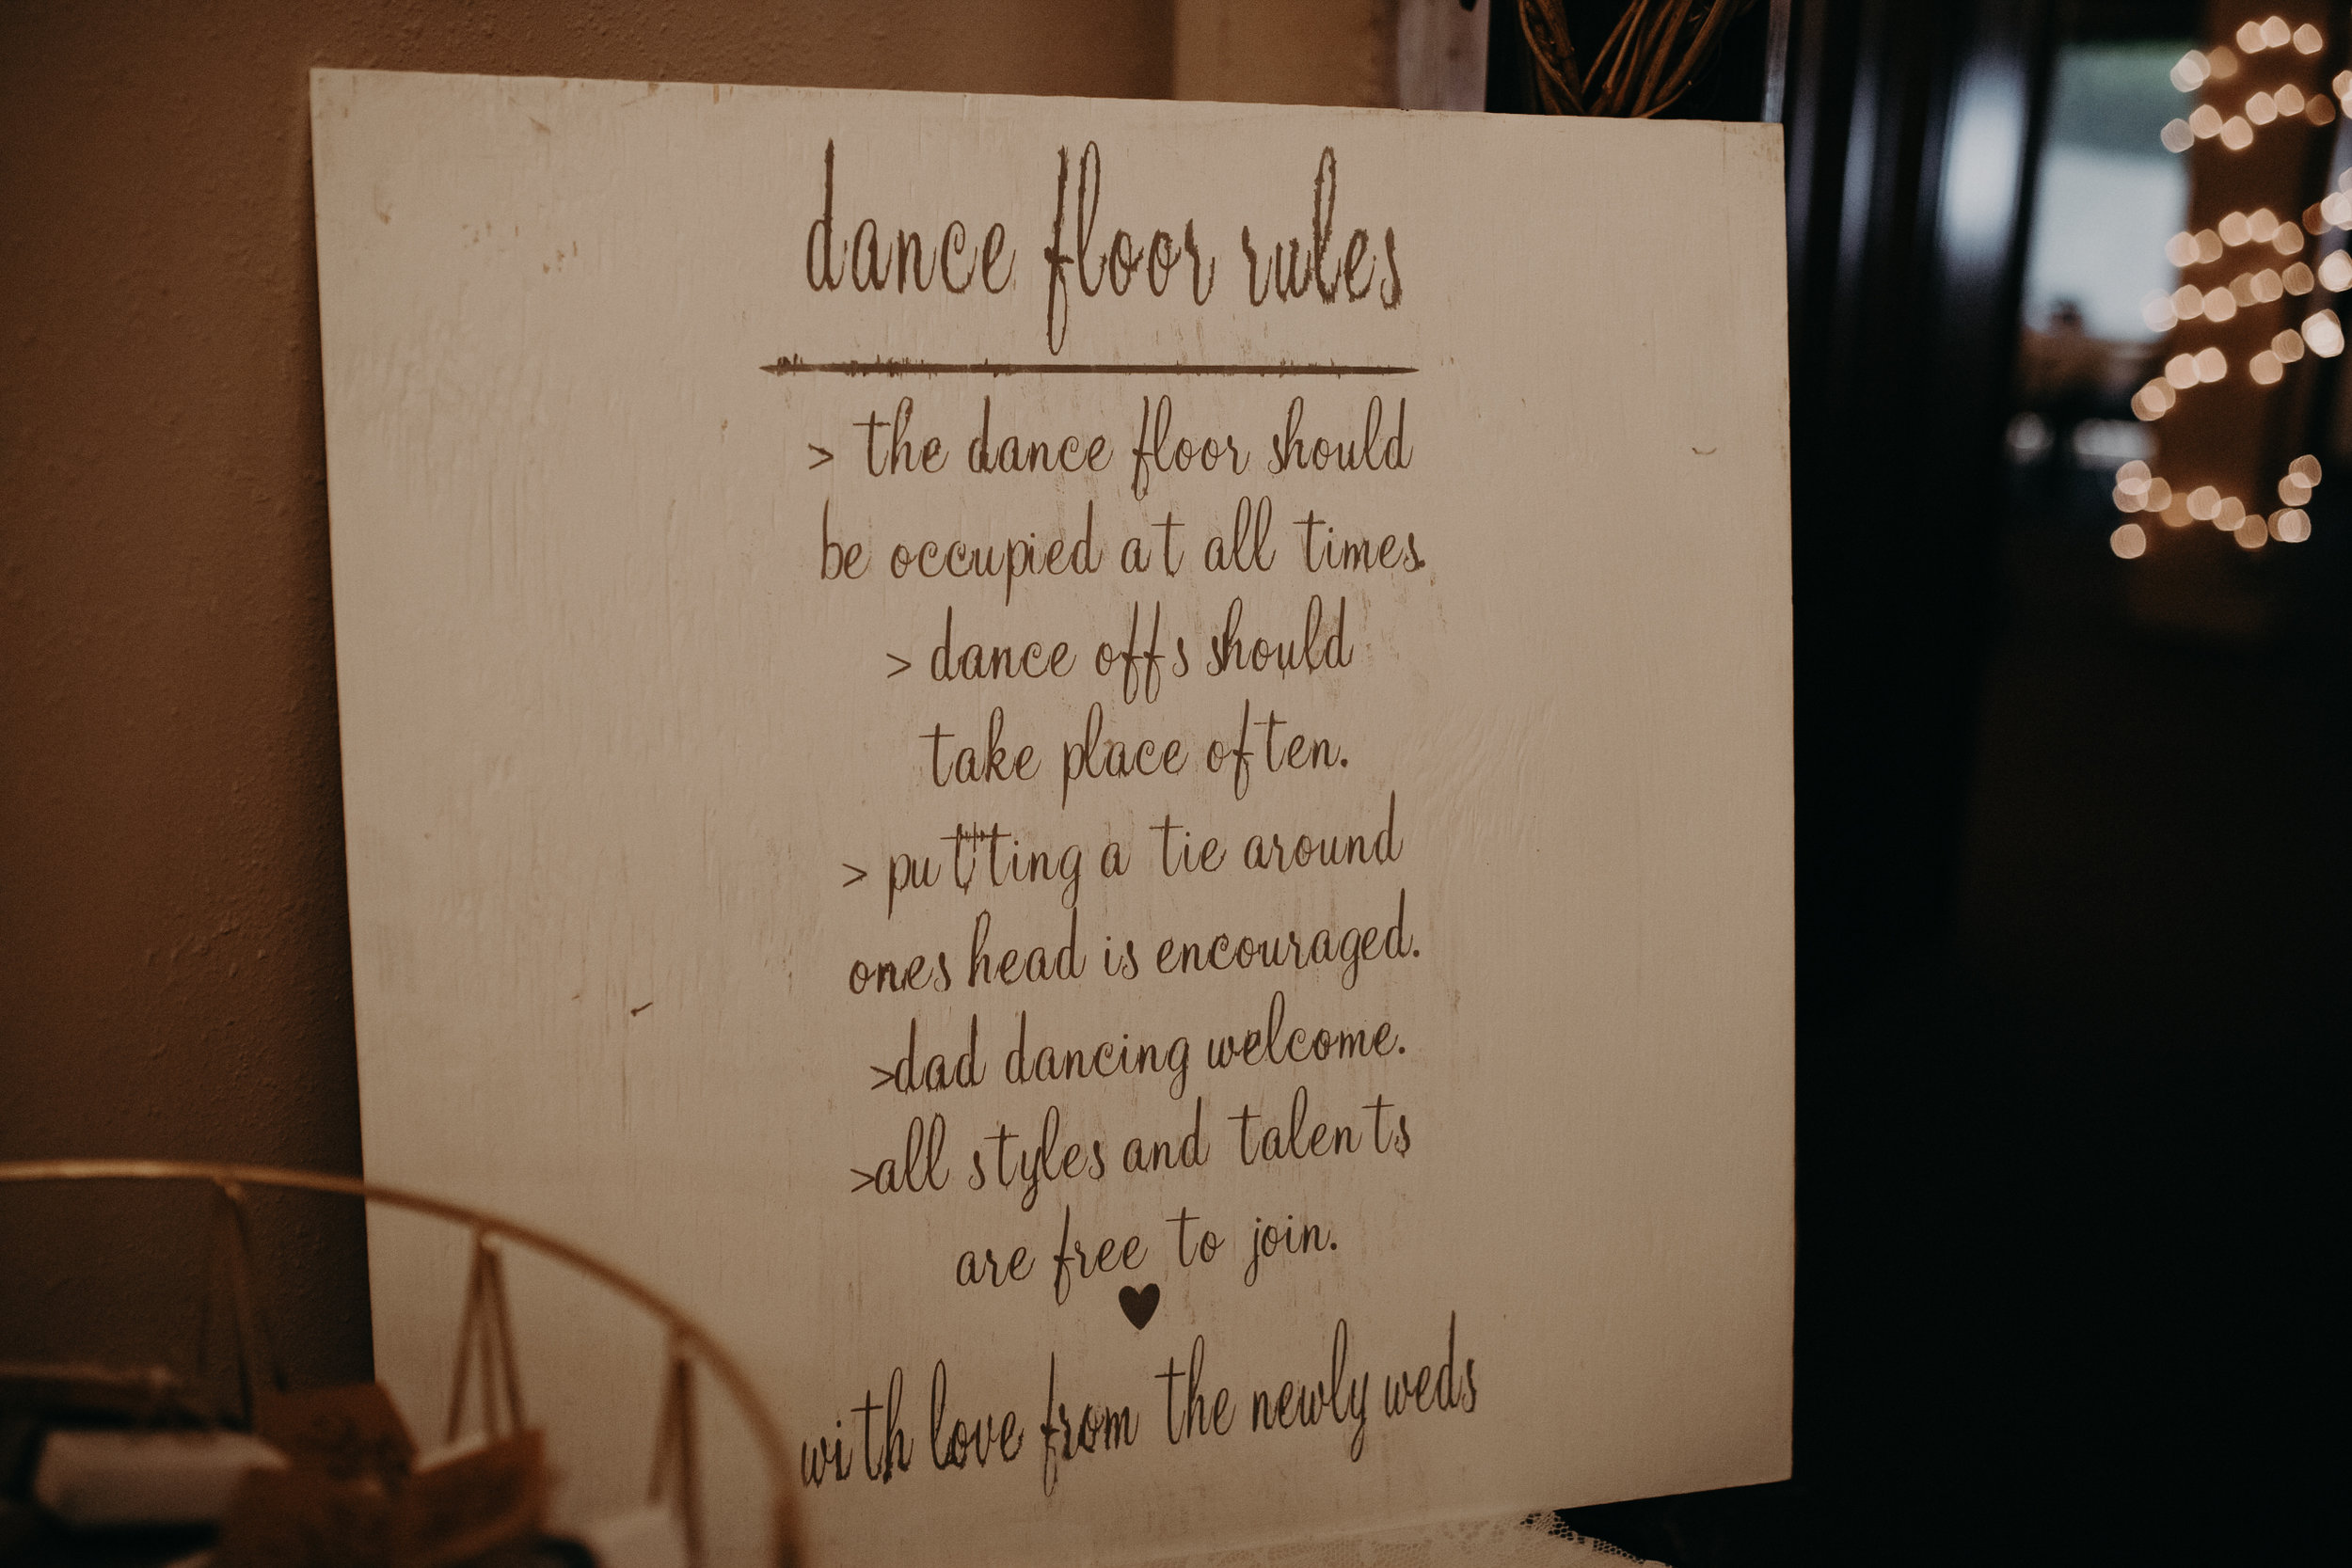 dance floor rules
> the dance floor should
be occupied at all times.
> dance offs should
take place often.
> putting a tie around
ones head is encouraged.
>dad dancing welcome.
>all styles and talents
are free to join.
with love from the newly weds